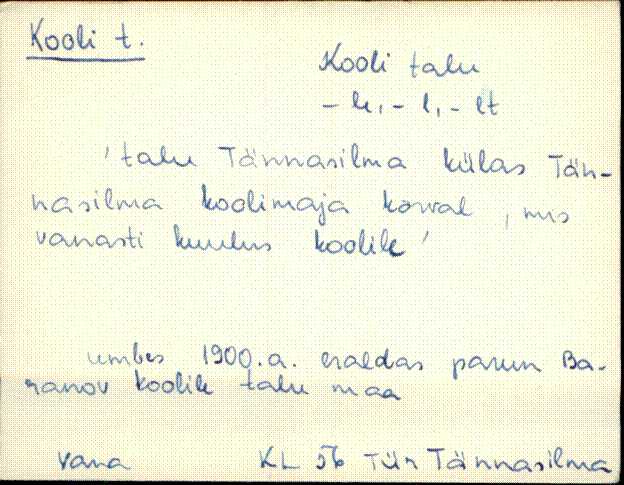 Kooli t.
Kooli talu
- le, - l, - lt
'talu Tännasilma külas Tän-
nasilma koolimaja kõrval, mis
vanasti kuulus koolile'
umbes 1900.a. eraldas parun Ba-
ranov koolile talu maa
vana KL 56 Tür Tännasilma